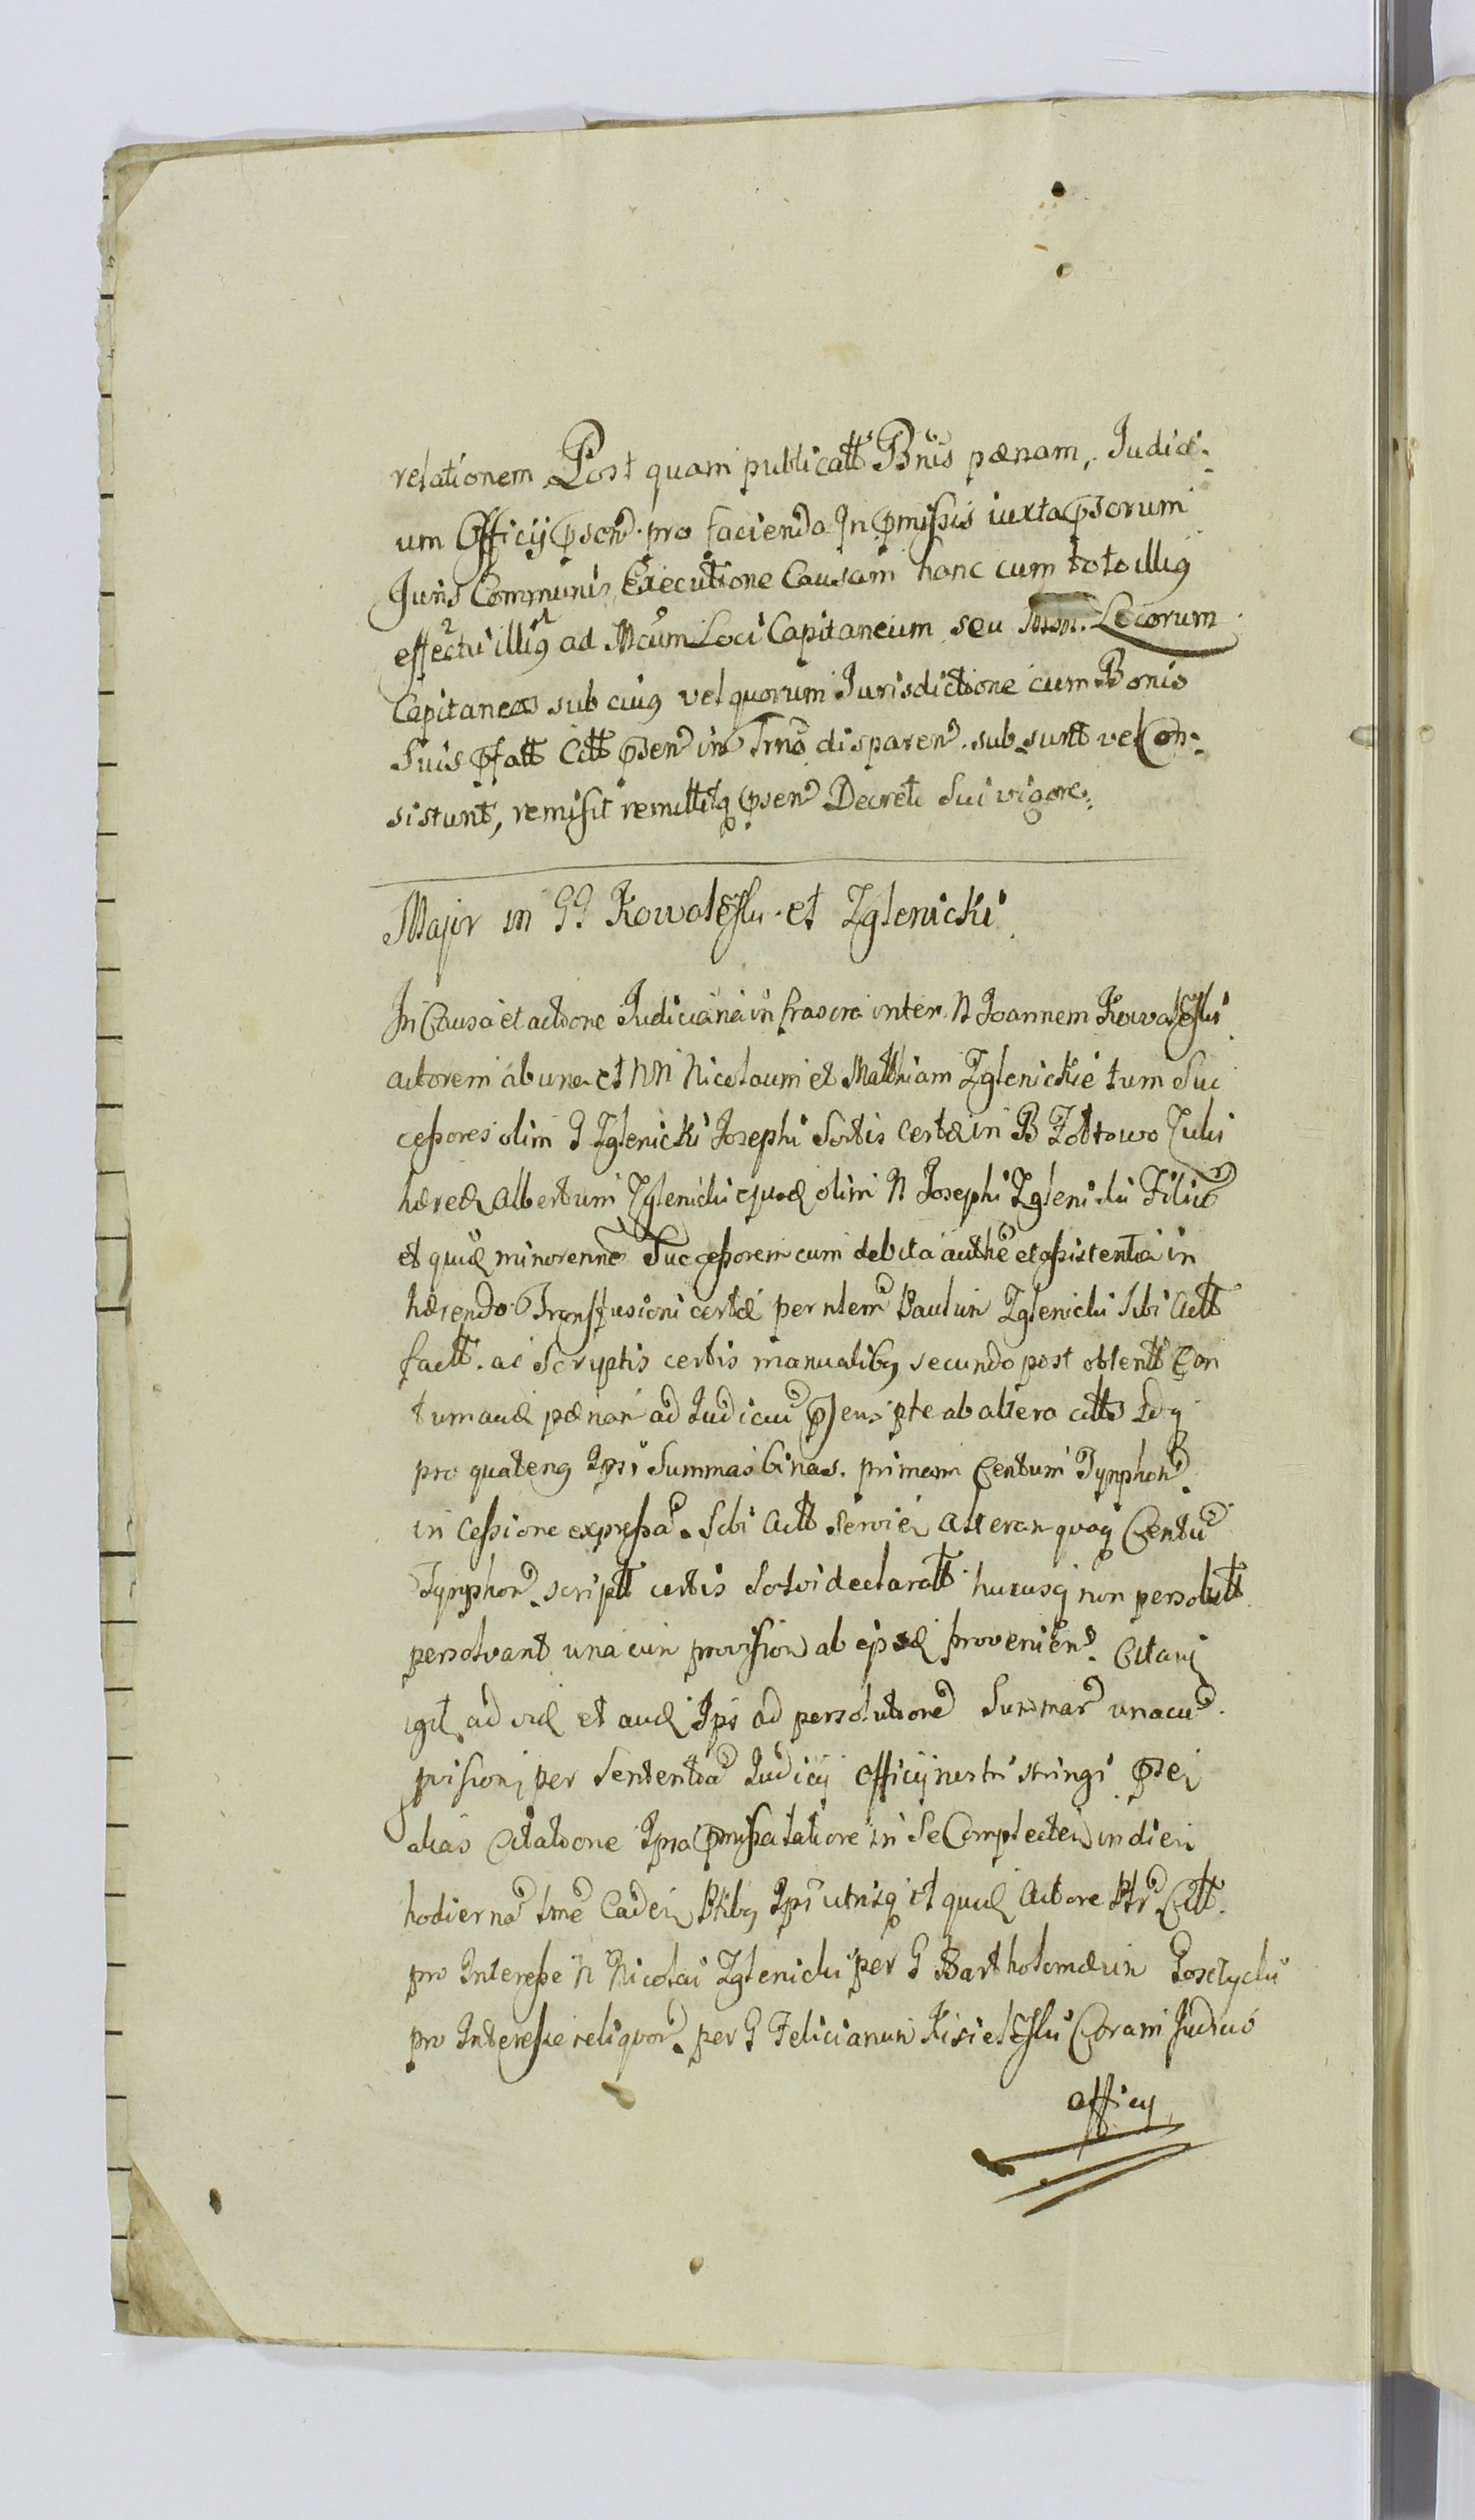 relationem Post quam publicatt Bnis pænam, Judici-
um Officij psen pro facienda In pmissis iuxta psorum
Juris Communis Executione Causam hanc cum toto illig
effectu illig ad Mcum Loci Capitaneum seu Locorum
Capitaneos sub cuig vel quorum Jurisdictione cum Bonis
Suis pfatt Citt psen in Trno disparen. sub sunt vel Con-
sistunt, remisit remittitq psen Decreti Sui vigore.
Major in GG Kowalewski et Zglenicki
In Causa et actione Judiciaria infrascra inter N Joannem Kowalewski
actorem ab una et NN Nicolaum et Mathiam Zglenickie tum Suc
cessores olim G Zglenicki Josephi Sortis certæ in B Zottowo
hæred Albertum Zglenicki quod olim N Josephi Zglenicki Filiu
et quid minorenne Successorem cum debita authe et assistentia in
hærendo Transfusioni certæ per Paulum Zglenicki Sibi Actt
factt. ac Scryptis certis manualibg secundo post obtentt Con
tumaciæ pænam ad Judicium psens pte ab altera citts Idq
pro quateng Ipsi Summas binas. primam Centum Tynphon
in Cessione expressa. Sibi Actt servien alteram quoq Centu
Tynphon scriptt certis Solvi declaratt hucusq non persolutt
persolvant una cum provision ab eisd provenien. Citari
igit ad vid et aud Ipsi ad persolutione Summar unacu
pvision per Sententia Judicij Officij nostri stringi psen
alias Citatione Ipsa pmissa latiore in Se Complecten in diem
hodierna tme Caden Ptibg Ipsi utrisq et quid Actore Citt.
pro Interesse N Nicolai Zglenicki per G Bartholomæum
pro Interesse reliquor. per G Felicianum Kisielewski Coram Judicio
Officij